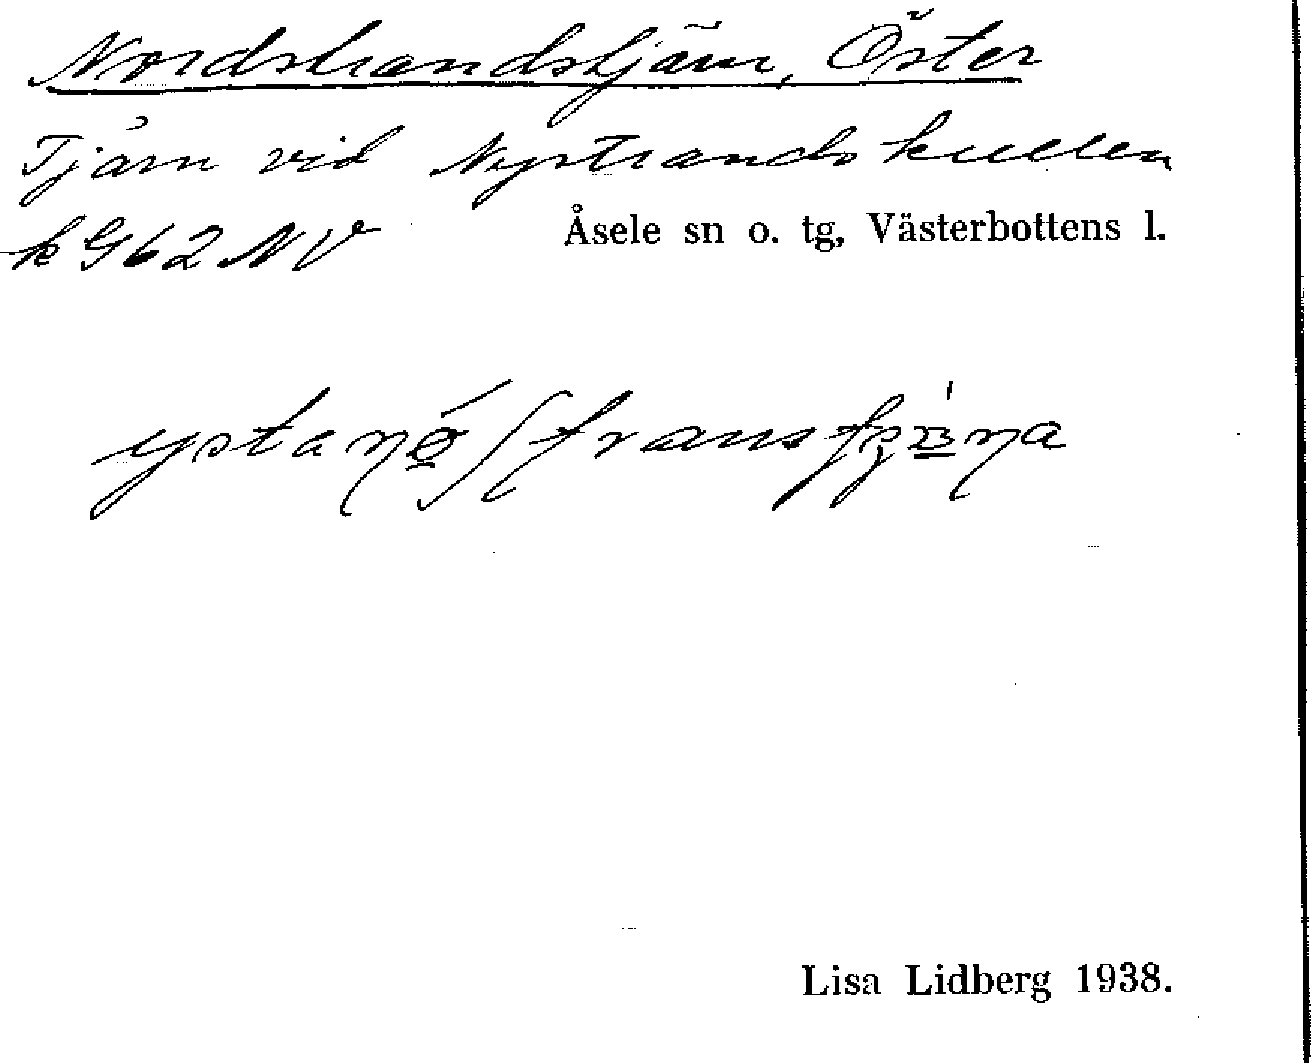 Nordstrandstjärn, Öster
Tjärn vid Nystrandskullen
k G62NV
Åsele sn o. tg, Västerbottens l.
Lisa Lidberg 1938.